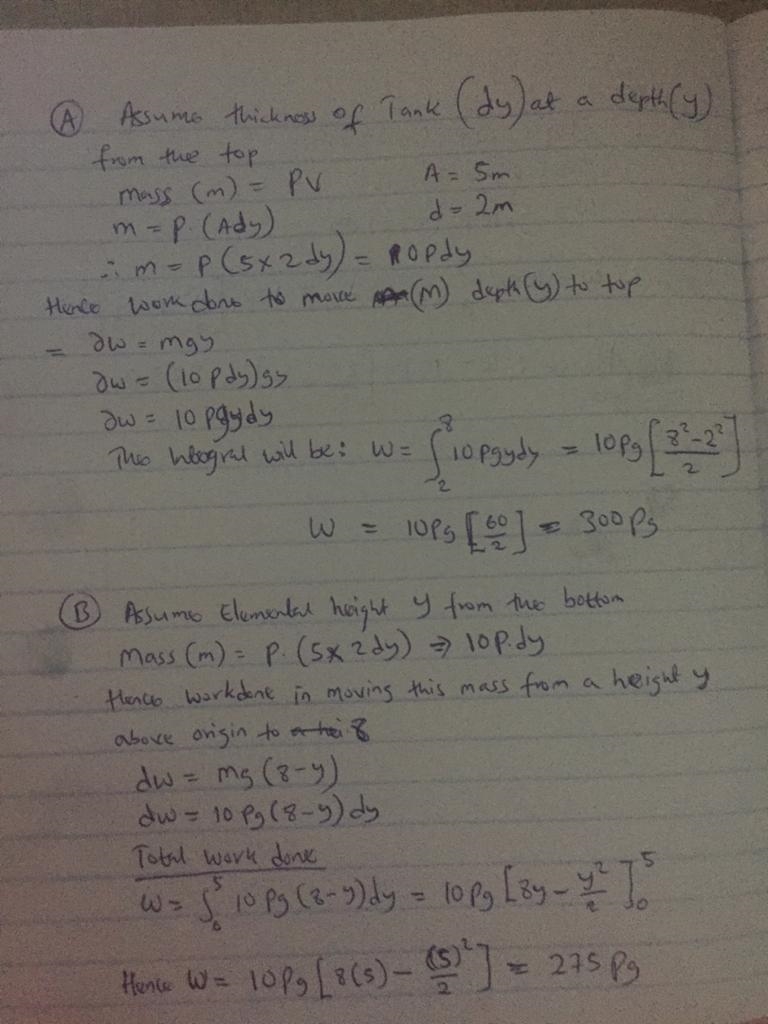 (A) Assume thickness of Tank (dy) at a depth(y)
from the top
mass (m) = PV A = 5m
m = P. (Ady) d = 2m
∴ m = P (5x2dy) = 10Pdy
Hence workdone to move (m) depth(y) to top
= ∂w = mgy
∂w = (10 Pdy)gy
∂w = 10 Pgydy
The integral will be: W = ∫₂⁸ 10Pgydy = 10Pg [8²-2²/2]
W = 10Pg [60/2] = 300Pg
(B) Assume Elemental height y from the bottom
Mass (m) = P. (5x2dy) ⇒ 10P.dy
Hence workdone in moving this mass from a height y
above origin to 8
dw = mg (8-y)
dw = 10Pg (8-y) dy
Total work done
W = ∫₀⁵ 10Pg (8-y)dy = 10Pg [8y - y²/2]₀⁵
Hence W = 10Pg [8(5) - (5)²/2] = 275Pg